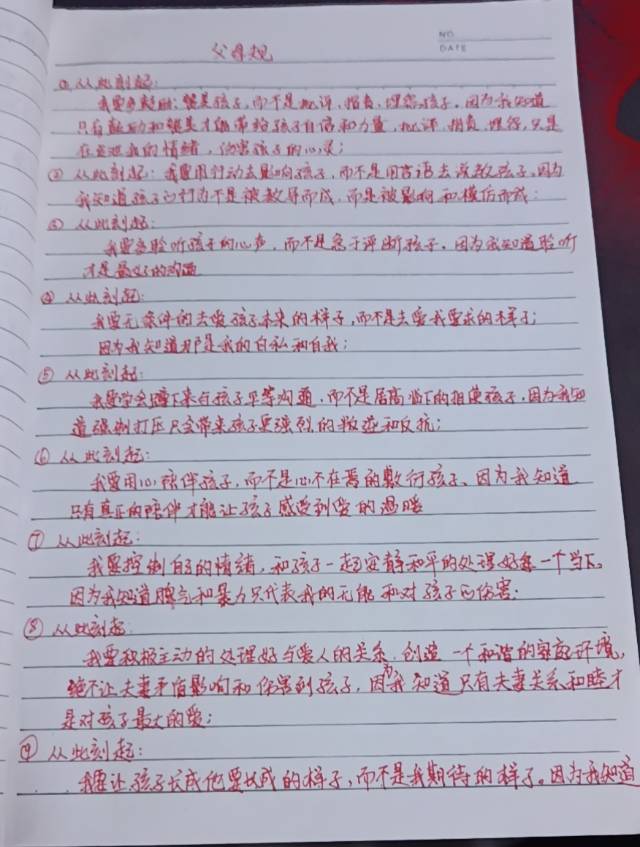 NO
DATE
父母规
① 从此刻起:
我要多鼓励、赞美孩子,而不是批评、指责、埋怨孩子。因为我知道
只有鼓励和赞美才能带给孩子自信和力量,批评、指责、埋怨,只是
在发泄我的情绪,伤害孩子的心灵;
② 从此刻起: 我要用行动去影响孩子,而不是用言语去说教孩子。因为
我知道孩子的行为不是被教导而成,而是被影响和模仿而成;
③ 从此刻起:
我要多聆听孩子的心声,而不是急于评断孩子。因为我知道聆听
才是最好的沟通
④ 从此刻起:
我要无条件的去爱孩子本来的样子,而不是去爱我要求的样子;
因为我知道那是我的自私和自我;
⑤ 从此刻起:
我要学会蹲下来与孩子平等沟通,而不是居高临下的指使孩子,因为我知
道强制打压只会带来孩子更强烈的叛逆和反抗;
⑥ 从此刻起:
我要用心陪伴孩子,而不是心不在焉的敷衍孩子、因为我知道
只有真正的陪伴才能让孩子感受到爱的温暖
⑦ 从此刻起:
我要控制自己的情绪,和孩子一起安静和平的处理好每一个当下。
因为我知道脾气和暴力只代表我的无能和对孩子的伤害.
⑧ 从此刻起
我要积极主动的处理好与爱人的关系,创造一个和谐的家庭环境,
绝不让夫妻矛盾影响和伤害到孩子,因为我知道只有夫妻关系和睦才
是对孩子最大的爱;
⑨ 从此刻起:
我要让孩子长成他要长成的样子,而不是我期待的样子。因为我知道